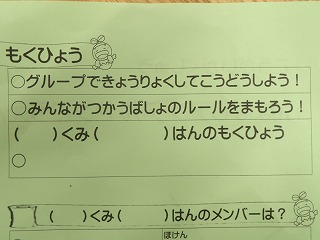 もくひょう
○グループできょうりょくしてこうどうしよう！
○みんながつかうばしょのルールをまもろう！
(　　)くみ(　　　　)はんのもくひょう
○
(　　)くみ(　　　　)はんのメンバーは？
ほけん